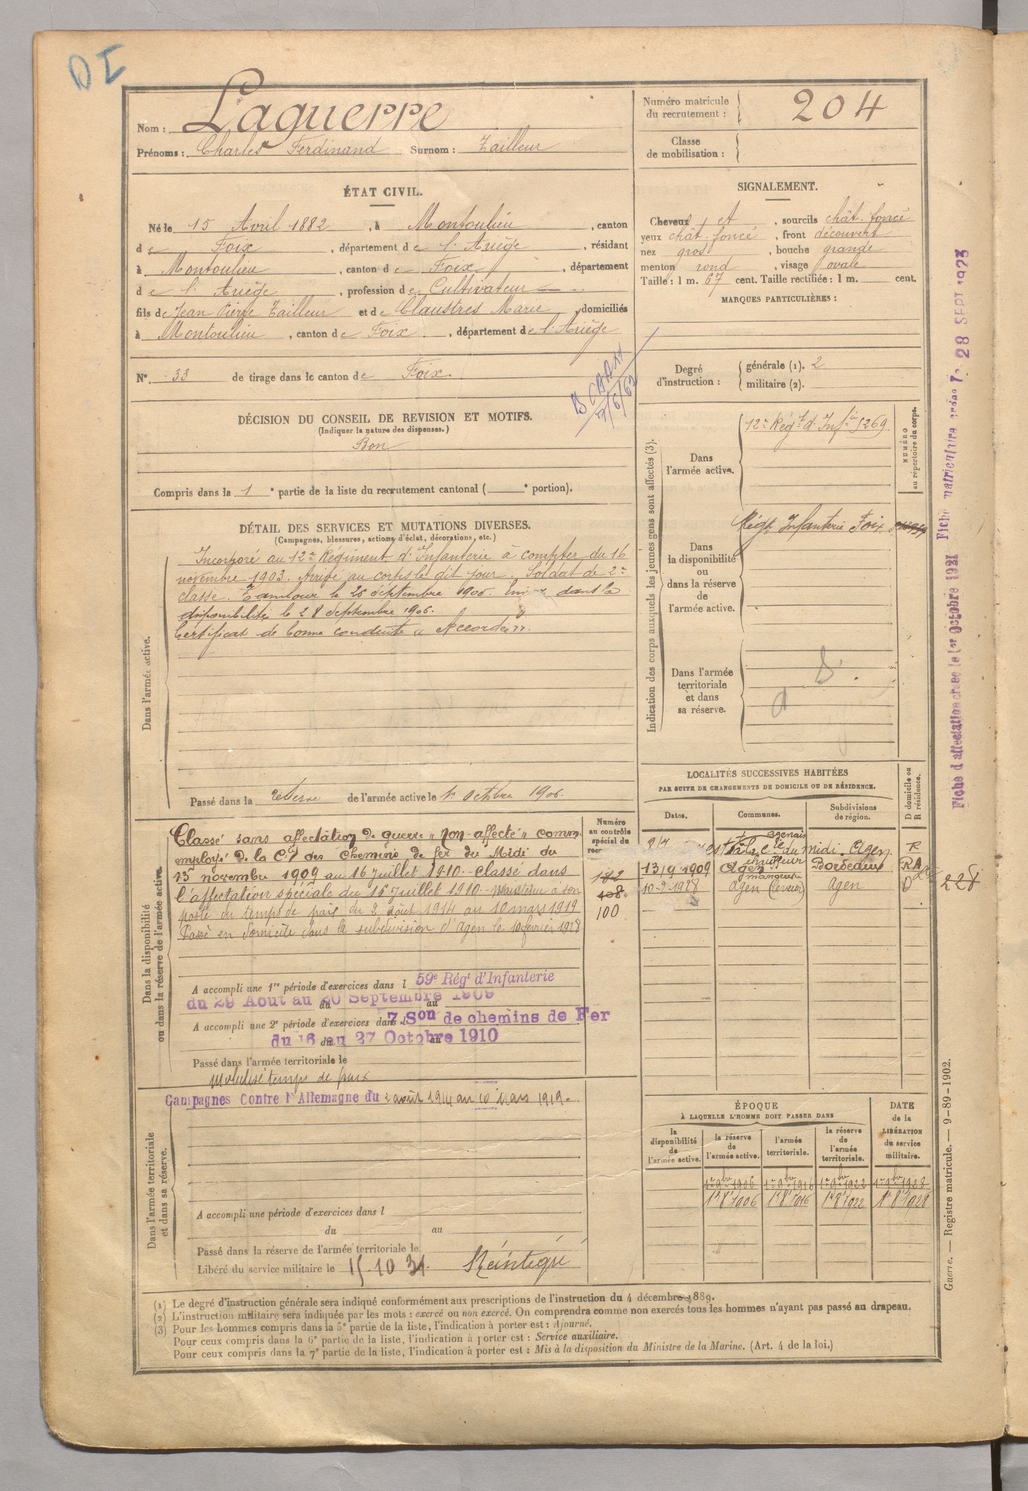 DI
Nom : Laguerre
Prénoms : Charles Ferdinand Surnom : Tailleur
Numéro matricule du recrutement : 204
Classe de mobilisation :
ÉTAT CIVIL.
Né le 15 Avril 1882, à Montoulieu, canton
de Foix, département de l'Ariège, résidant
à Montoulieu, canton de Foix, département
de l'Ariège, profession de Cultivateur
fils de Jean Pierre Tailleur et de Claustres Marie, domiciliés
à Montoulieu, canton de Foix, département de l'Ariège
N° 33 de tirage dans le canton de Foix.
SIGNALEMENT.
Cheveux et, sourcils chât. foncé
yeux chât. foncé, front découvert
nez gros, bouche grande
menton rond, visage ovale
Taille : 1 m. 67 cent. Taille rectifiée : 1 m. cent.
MARQUES PARTICULIÈRES :
Degré d'instruction :
générale (1). 2
militaire (2).
DÉCISION DU CONSEIL DE REVISION ET MOTIFS.
(Indiquer la nature des dispenses.)
Bon
Compris dans la 1e partie de la liste du recrutement cantonal ( e portion).
DÉTAIL DES SERVICES ET MUTATIONS DIVERSES.
(Campagnes, blessures, actions d'éclat, décorations, etc.)
Dans l'armée active.
Incorporé au 12e Régiment d'Infanterie a compter du 16
novembre 1903. Arrivé au corps le dit jour. Soldat de 2e
classe. Tambour le 26 septembre 1905. dans la
disponibilité le 28 septembre 1906.
Certificat de bonne conduite "Accordé".
Passé dans la réserve de l'armée active le 1er octobre 1906
Indication des corps auxquels les jeunes gens sont affectés (3).
NUMÉRO au répertoire du corps.
Dans l'armée active.
12e Régt d'Infie 5269
Dans la disponibilité ou dans la réserve de l'armée active.
Régt Infanterie Foix
Dans l'armée territoriale et dans sa réserve.
Fiche d'affectation créée le 1er Octobre 1921 Fiche matriculaire créée 28 SEPT 1923
LOCALITÉS SUCCESSIVES HABITÉES
PAR SUITE DE CHANGEMENTS DE DOMICILE OU DE RÉSIDENCE.
Dates. Communes. Subdivisions de région. D domicile ou R résidence.
du Midi, Agen R
13/9 1909 Agen Bordeaux R
10-2-1928 Agen Agen D
228
Dans la disponibilité ou dans la réserve de l'armée active.
Numéro au contrôle spécial du
Classé sans affectation de guerre "non-affecté" comme
employé de la Cie des chemins de fer du Midi du
13 novembre 1909 au 16 juillet 1910. Classé dans
l'affectation spéciale du 16 juillet 1910. Maintenu à son
poste du temps de paix du 2 août 1914 au 10 mars 1919
Passé en domicile dans la subdivision d'Agen le 10 février 1928
142
108
100
A accompli une 1re période d'exercices dans l 59e Régt d'Infanterie
du 29 Aout au 20 Septembre 1909
A accompli une 2e période d'exercices dans l 7 Son de chemins de Fer
du 16 au 27 Octobre 1910
Passé dans l'armée territoriale le
Mobilisé temps de paix
Campagnes Contre l'Allemagne du 2 août 1914 au 10 mars 1919.
Dans l'armée territoriale et dans sa réserve.
A accompli une période d'exercices dans l
du au
Passé dans la réserve de l'armée territoriale le
Libéré du service militaire le 15-10 31. Réintégré
ÉPOQUE
À LAQUELLE L'HOMME DOIT PASSER DANS
DATE de la LIBÉRATION du service militaire.
la disponibilité de l'armée active. la réserve de l'armée active. l'armée territoriale. la réserve de l'armée territoriale.
1er 9bre 1906 1er 9bre 1916 1er 9bre 1922 1er 9bre 1928
1er 8bre 1906 1er 8bre 1916 1er 8bre 1922 1er 8bre 1928
Guerre. — Registre matricule. — 9-89-1902.
(1) Le degré d'instruction générale sera indiqué conformément aux prescriptions de l'instruction du 4 décembre 1889.
(2) L'instruction militaire sera indiquée par les mots : exercé ou non exercé. On comprendra comme non exercés tous les hommes n'ayant pas passé au drapeau.
(3) Pour les hommes compris dans la 5e partie de la liste, l'indication à porter est : Ajourné.
Pour ceux compris dans la 6e partie de la liste, l'indication à porter est : Service auxiliaire.
Pour ceux compris dans la 7e partie de la liste, l'indication à porter est : Mis à la disposition du Ministre de la Marine. (Art. 4 de la loi.)